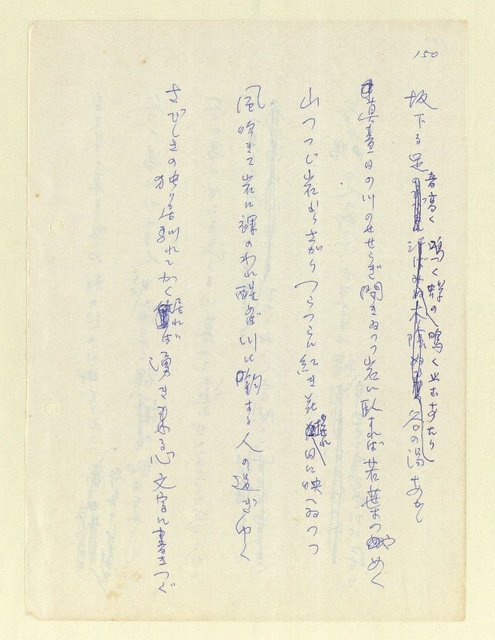 150
坂下る足音高く鳴く蝉の鳴く止むあたり谷の湯あり
真昼日の川のせせらぎ聞きゐつつ岩に臥すれば若葉つやめく
山つつじ岩むらがりつらつらに紅き花揺れ日に映へゐつつ
風吹きて岩に裸のわれ醒むれば川に鉤する人の過ぎゆく
さびしきの独り居馴れてかく居れば湧き来る心文字に書きつぐ